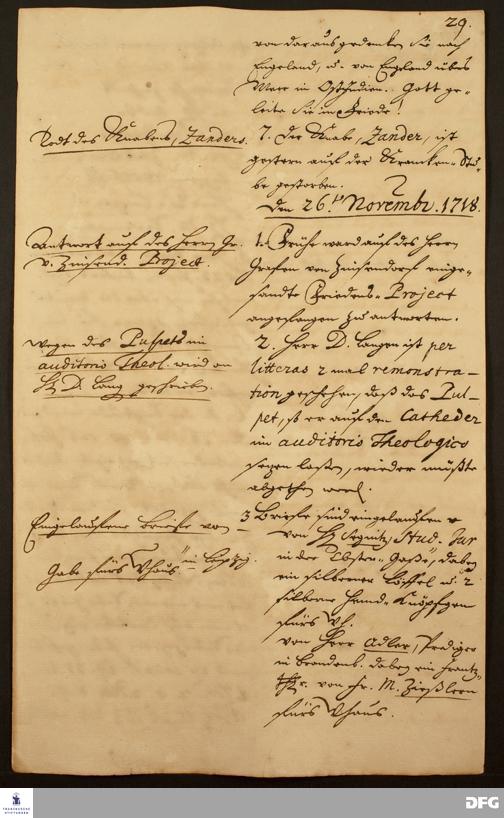 29.
von dar aus gedencken Sie nach
Engeland, u. von Engeland übers
Meer in Ostindien. Gott ge-
leite Sie in Friede!
Todt des Knabens, Zanders.
7. Der Knabe, Zander, ist
gestern auf der Krancken-Stu-
be gestorben.
Den 26.t Novembr. 1718.
Antwort auf des Herrn Gr.
v. Project.
1. Frühe ward auf des Herrn
Grafen von einge-
sandte Friedens-Project
angefangen zu antworten.
Wegen des Pulpets im
auditorio Theol. wird an
H. D. Lang geschrieben.
2. Herr D. Langen ist per
litteras 2 mal remonstra-
tion geschehen, daß das Pul-
pet, so er auf den Catheder
im auditorio Theologico
setzen laßen, wieder müßte
abgethan werd.
Eingelauffene Briefe von
Gabe fürs Whaus.
3 Briefe sind eingelauffen
von H. Stud. Jur
in der Gaße, dabey
ein silberner Löffel u. 2
silberne Hemd-Knöpfgen
fürs Wh.
von Herr Adler, Prediger
in Brandenb. dabey ein
von Fr. M.
fürs Whaus.
FRANCKESCHE STIFTUNGEN
DFG